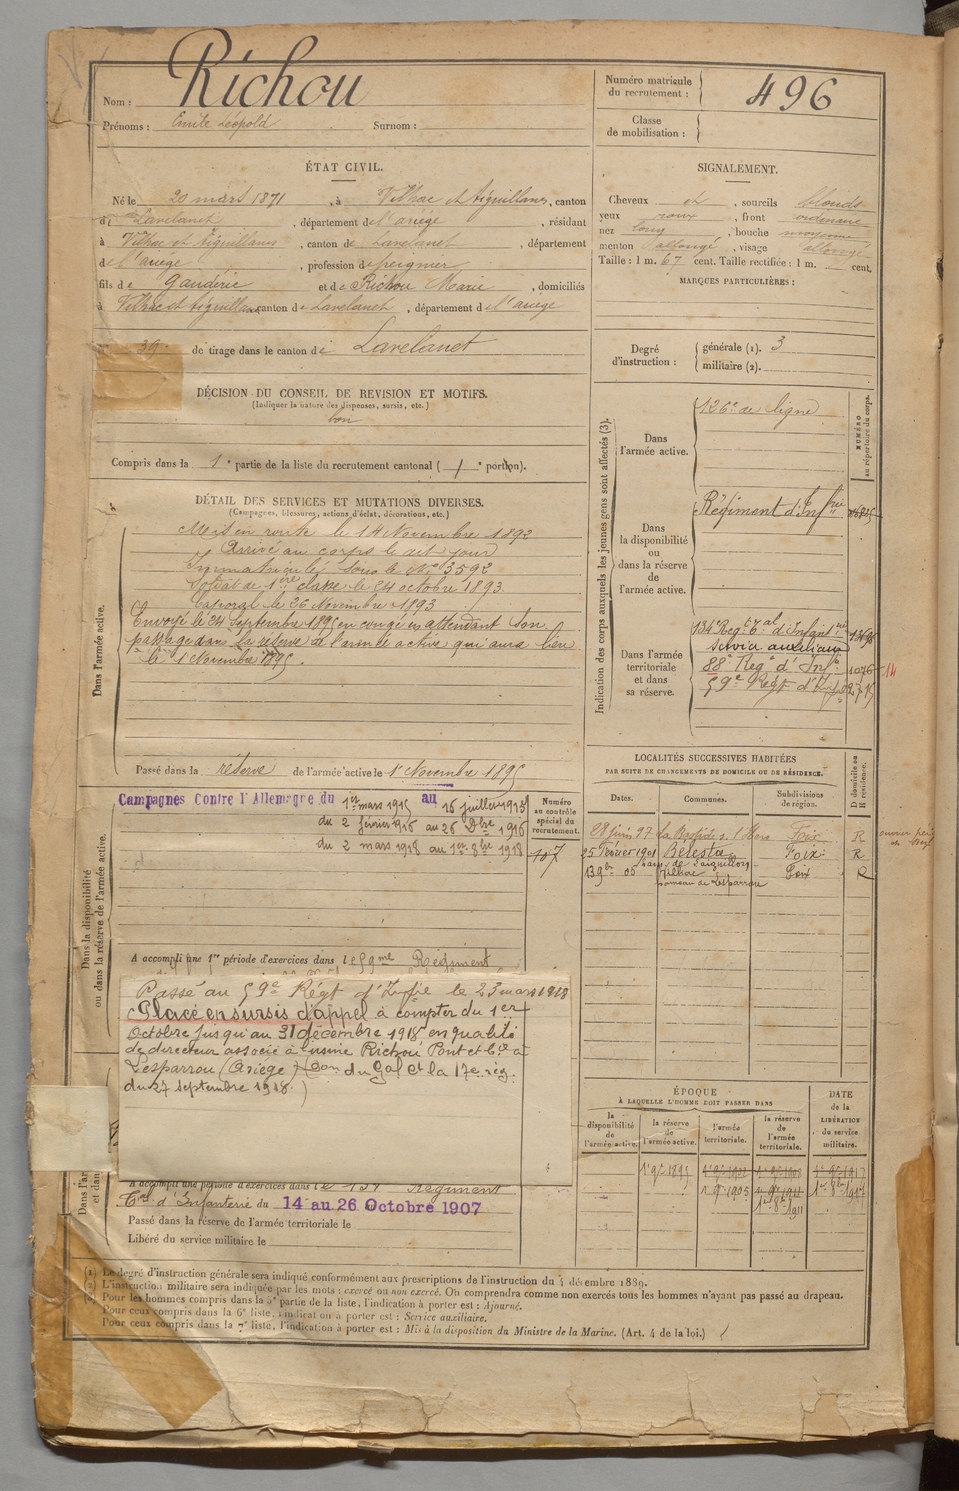 Nom : Richou
Prénoms : Emile Léopold Surnom :
Numéro matricule du recrutement : 496
Classe de mobilisation :
ÉTAT CIVIL.
Né le 20 mars 1871, à Vilhac et Aiguillanes, canton
de Lavelanet, département de l'ariège, résidant
à Vilhac et Aiguillanes, canton de Lavelanet, département
de l'ariège, profession de peigneur
fils de Gaudéric et de Richou Marie, domiciliés
à Vilhac et Aiguillanes canton de Lavelanet, département de l'ariège
39 de tirage dans le canton de Lavelanet
SIGNALEMENT.
Cheveux et, sourcils blonds
yeux roux, front ordinaire
nez long, bouche moyenne
menton allongé, visage allongé
Taille : 1 m. 67 cent. Taille rectifiée : 1 m. cent.
MARQUES PARTICULIÈRES :
Degré d'instruction : générale (1). 3
militaire (2).
DÉCISION DU CONSEIL DE REVISION ET MOTIFS.
(Indiquer la nature des dispenses, sursis, etc.)
bon
Compris dans la 1e partie de la liste du recrutement cantonal ( e portion).
DÉTAIL DES SERVICES ET MUTATIONS DIVERSES.
(Campagnes, blessures, actions d'éclat, décorations, etc.)
Dans l'armée active.
Mis en route le 14 Novembre 1892
Arrivé au corps le dit jour
Immatriculé sous le No 3592
Soldat de 1ère classe le 24 octobre 1893
Caporal le 26 Novembre 1893
Envoyé le 24 Septembre 1895 en congé en attendant son
passage dans la réserve de l'armée active qui aura lieu
le 1 Novembre 1895.
Passé dans la réserve de l'armée active le 1 Novembre 1895
Indication des corps auxquels les jeunes gens sont affectés (3).
NUMÉRO au répertoire du corps.
Dans l'armée active.
126e de ligne
Dans la disponibilité ou dans la réserve de l'armée active.
Régiment d'Infrie
Dans l'armée territoriale et dans sa réserve.
134 Regt tal d'Infantrie
Service auxiliaire
88e Regt d'Infie 1076 14
59e Régt d'Infie
Dans la disponibilité ou dans la réserve de l'armée active.
Campagnes Contre l'Allemagne du 1er mars 1915 au 16 juillet 1915
du 2 février 1916 au 26 Dbre 1916
du 2 mars 1918 au 1er 8bre 1918
Numéro au contrôle spécial du recrutement.
107
A accompli une 1re période d'exercices dans le 59me Régiment
Passé au 59e Régt d'Infie le 23 mars 1918
Placé en sursis d'appel à compter du 1er
Octobre jusqu'au 31 décembre 1918 en qualité
de directeur associé à usine Richou Pont et Cie à
Lesparrou (Ariège) (Son du Gal Ct la 17e rég.
du 27 septembre 1918.)
A accompli une période d'exercices dans le Régiment
tal d'Infanterie du 14 au 26 Octobre 1907
Passé dans la réserve de l'armée territoriale le
Libéré du service militaire le
LOCALITÉS SUCCESSIVES HABITÉES
PAR SUITE DE CHANGEMENTS DE DOMICILE OU DE RÉSIDENCE.
Dates. Communes. Subdivisions de région. D domicile ou R résidence.
28 juin 97 La Bastide s. l'Hers Foix R
25 Février 1901 Bélesta Foix R
13 9bre 05 Vilhac Foix R
hameau de Lesparrou
ÉPOQUE
À LAQUELLE L'HOMME DOIT PASSER DANS
la disponibilité de l'armée active.
la réserve de l'armée active.
l'armée territoriale.
la réserve de l'armée territoriale.
DATE de la LIBÉRATION du service militaire.
1 9bre 1895
1 9bre 1905
1er 8bre 1911
1er 8bre 1917
(1) Le degré d'instruction générale sera indiqué conformément aux prescriptions de l'instruction du 4 décembre 1889.
(2) L'instruction militaire sera indiquée par les mots : exercé ou non exercé. On comprendra comme non exercés tous les hommes n'ayant pas passé au drapeau.
(3) Pour les hommes compris dans la 5e partie de la liste, l'indication à porter est : Ajourné.
Pour ceux compris dans la 6e liste, l'indication à porter est : Service auxiliaire.
Pour ceux compris dans la 7e liste, l'indication à porter est : Mis à la disposition du Ministre de la Marine. (Art. 4 de la loi.)